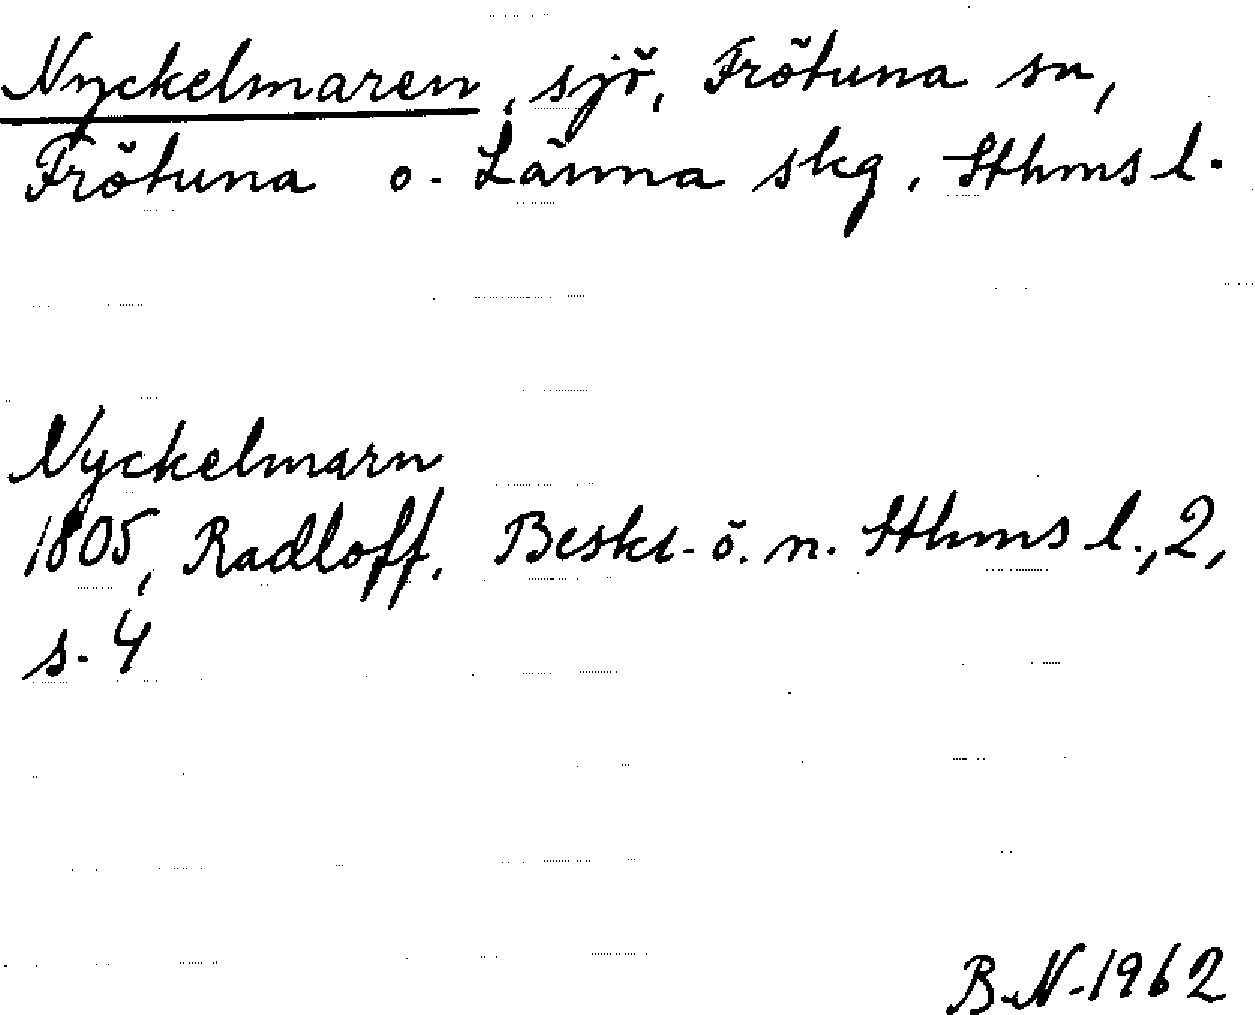 Nyckelmaren, sjö, Frötuna sn,
Frötuna o. Länna skg, Sthms l.
Nyckelmarn
1805, Radloff, Beskr. ö. n. Sthms l., 2,
s. 4
B.N. 1962